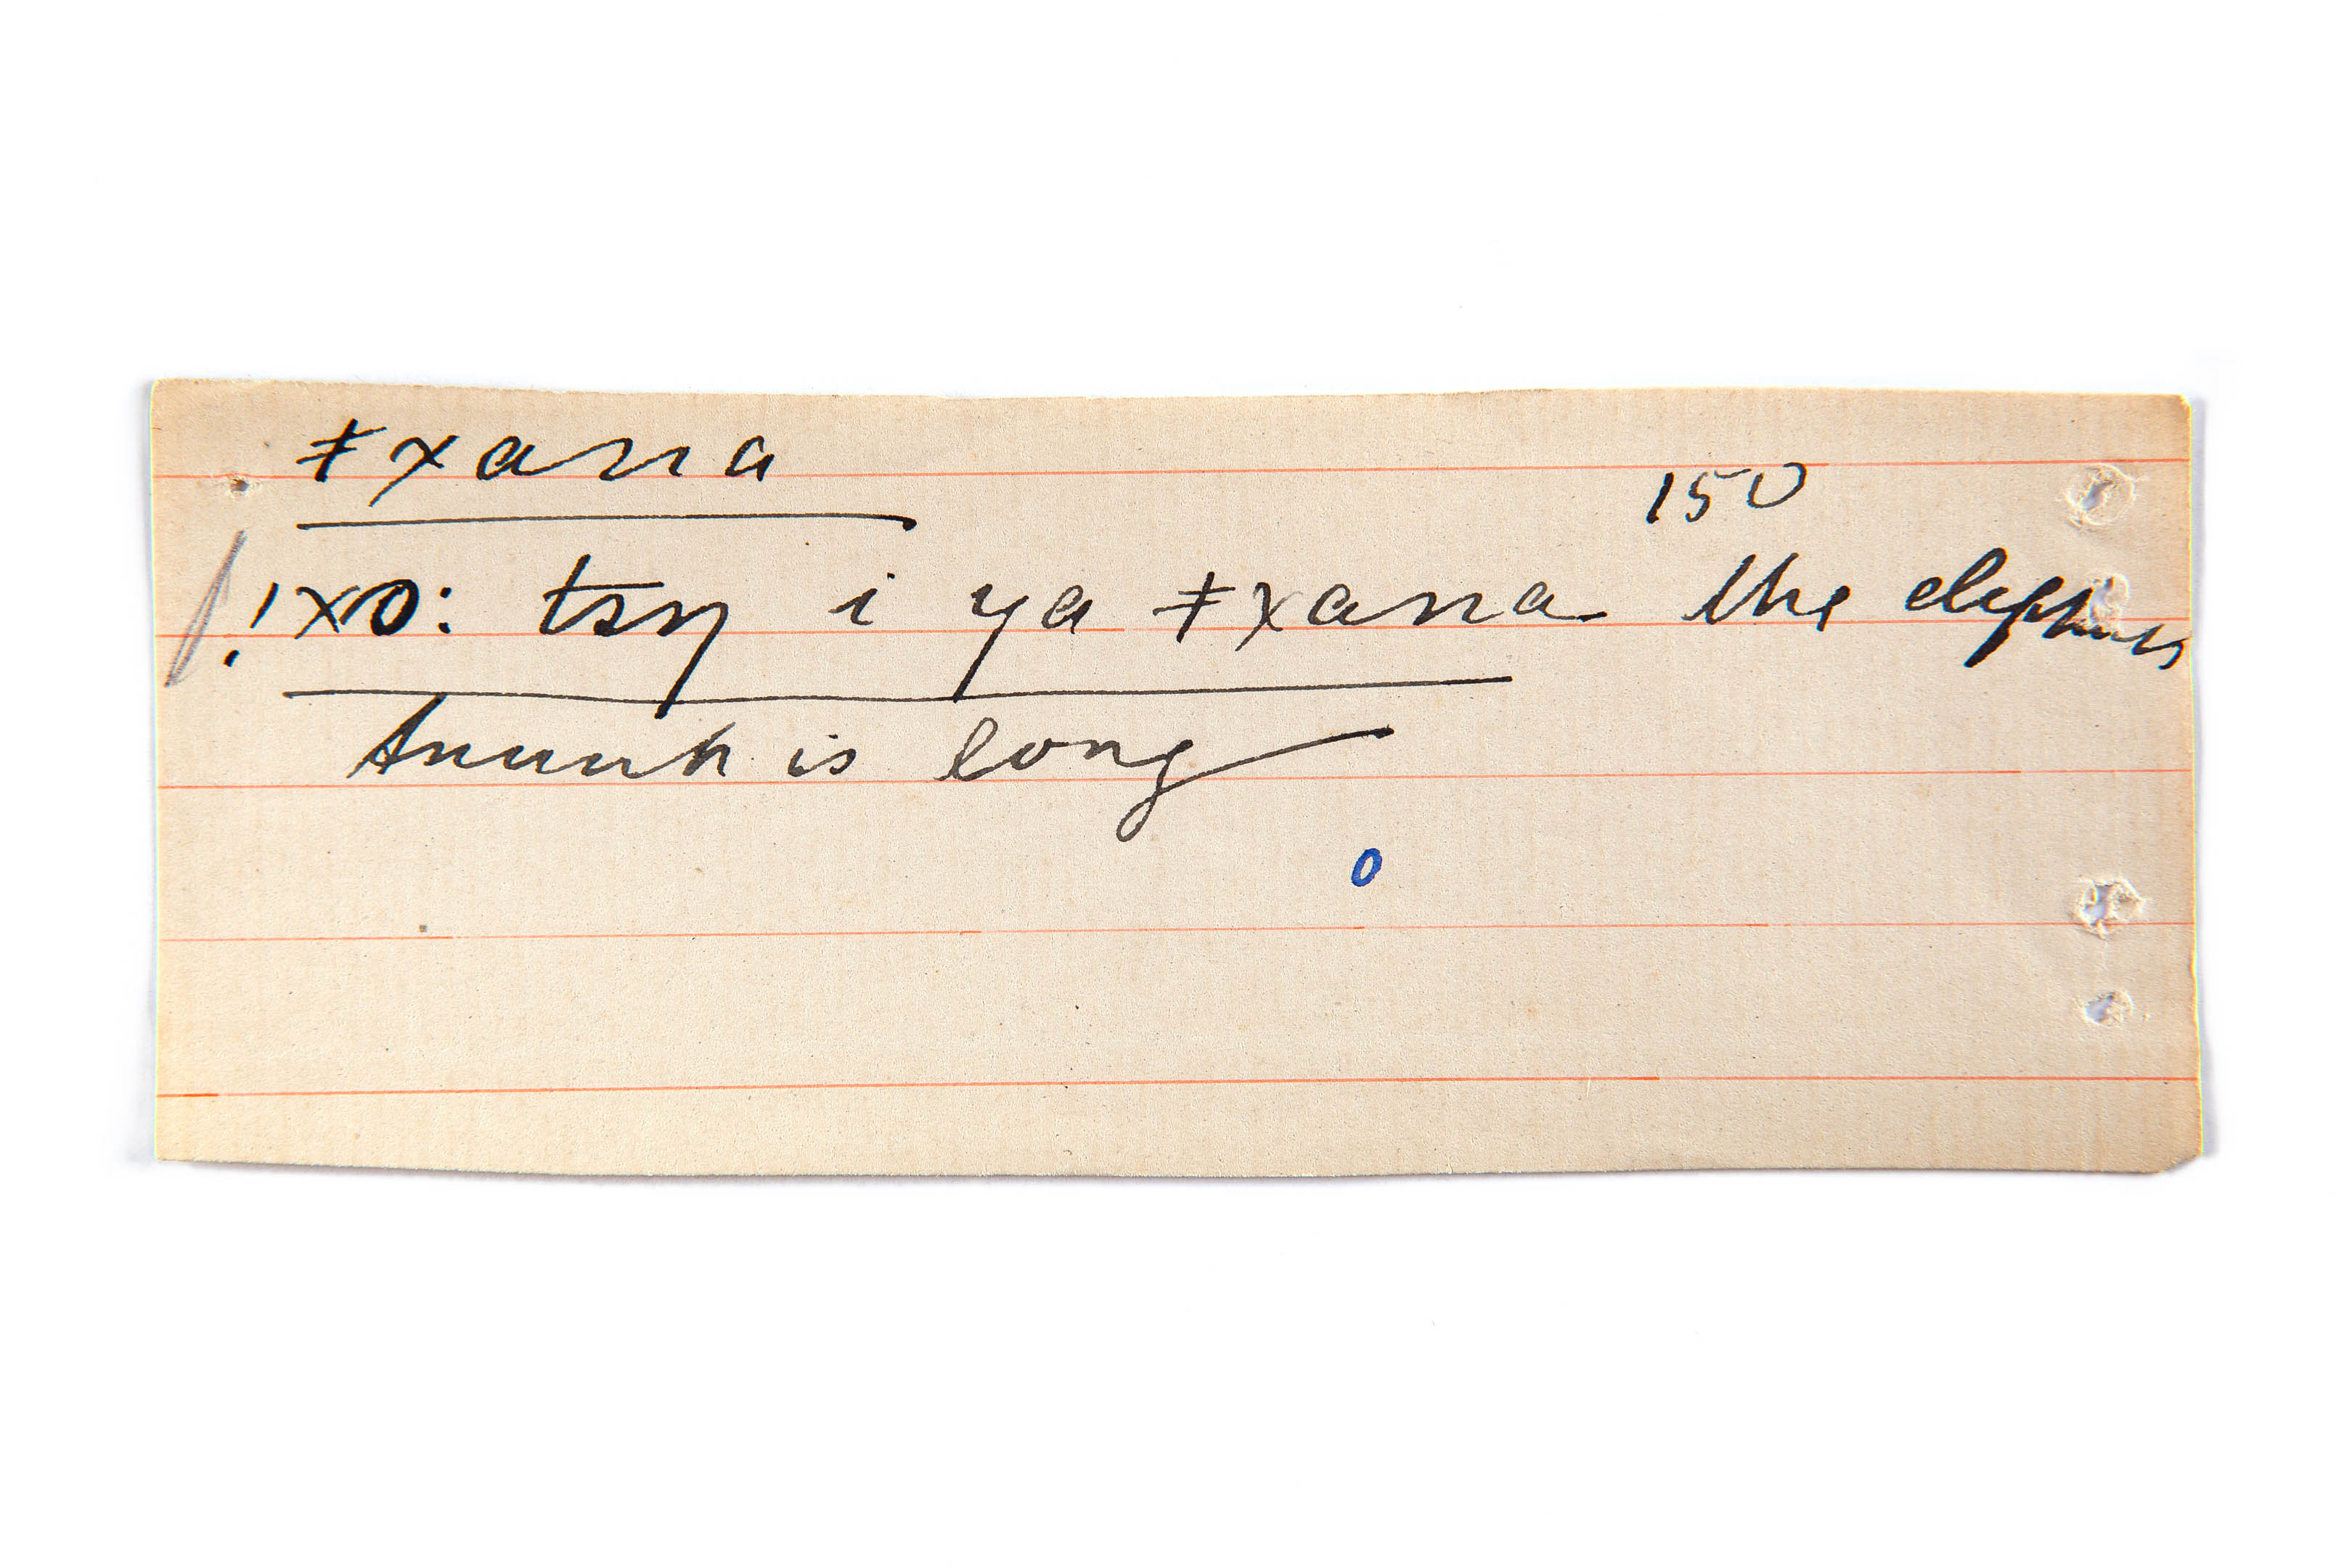 ǂxana
150
!xo: tsŋ i ya ǂxana the elephants
trunk is long
o